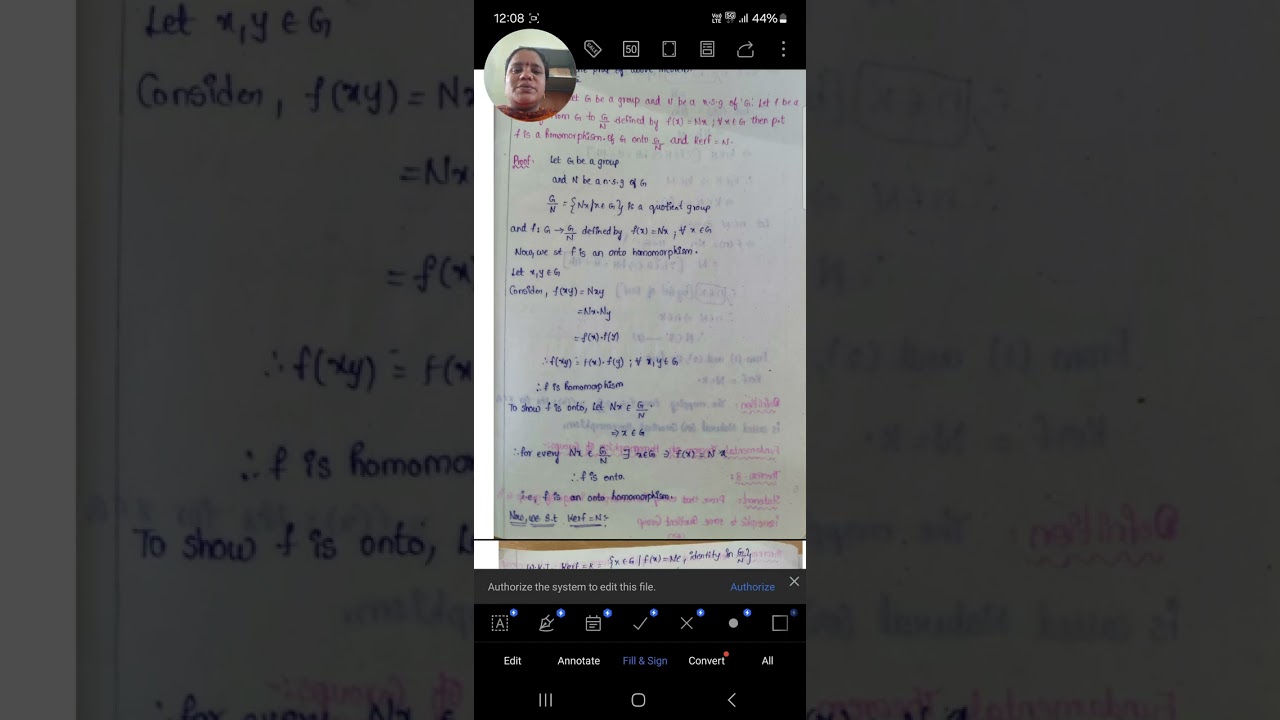 Let x, y ∈ G
Consider, f(xy) = Nx
= Nx
= f(x
∴ f(xy) = f(x
∴ f is homom
To show f is onto, L
12:08
44%
50
G be a group and N be a n.s.g of G. Let f be a
from G to G/N defined by f(x) = Nx ; ∀ x ∈ G then p.t
f is a homomorphism of G onto G/N and Kerf = N.
Proof: Let G be a group
and N be a n.s.g of G
G/N = {Nx/x ∈ G} is a quotient group
and f: G → G/N defined by f(x) = Nx ; ∀ x ∈ G
Now, we st f is an onto homomorphism.
Let x, y ∈ G
Consider, f(xy) = Nxy
= Nx·Ny
= f(x)·f(y)
∴ f(xy) = f(x)·f(y) ; ∀ x, y ∈ G
∴ f is homomorphism
To show f is onto, Let Nx ∈ G/N.
⇒ x ∈ G
∴ for every Nx ∈ G/N ∃ x ∈ G ∋ f(x) = Nx
∴ f is onto.
i.e, f is an onto homomorphism.
Now, we S.t Kerf = N:-
W.K.T Kerf = K = {x ∈ G / f(x) = Ne, identity in G/N}
Authorize the system to edit this file.
Authorize
Edit
Annotate
Fill & Sign
Convert
All